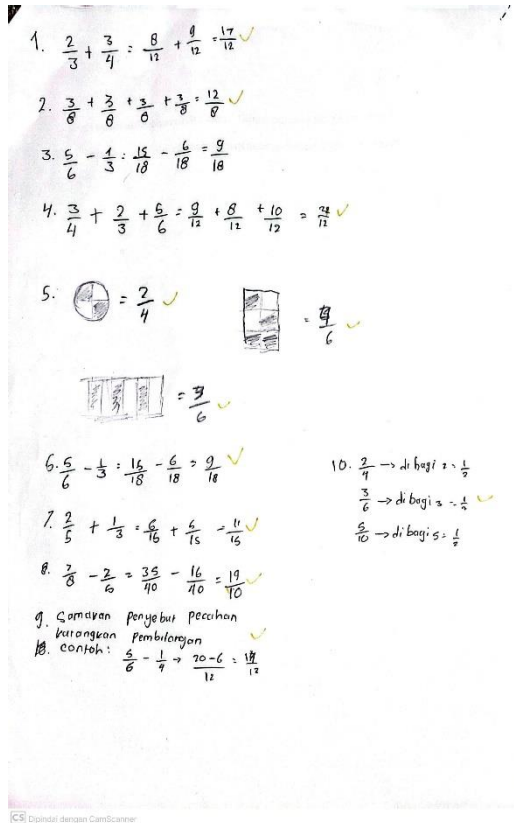 1. 2/3 + 3/4 = 8/12 + 9/12 = 17/12
2. 3/8 + 3/8 + 3/8 + 3/8 = 12/8
3. 5/6 - 1/3 : 15/18 - 6/18 = 9/18
4. 3/4 + 2/3 + 5/6 = 9/12 + 8/12 + 10/12 =
5. = 2/4
= 4/6
= 3/6
6. 5/6 - 1/3 : 15/18 - 6/18 = 9/18
7. 2/5 + 1/3 = 6/15 + 5/15 = 11/15
8. 7/8 - 2/5 = 35/40 - 16/40 = 19/40
9. Samakan penyebut pecahan
kurangkan pembilangan
contoh: 5/6 - 1/4 → 20-6/12 =
10. 2/4 → di bagi 2 = 1/2
3/6 → di bagi 3 = 1/2
5/10 → di bagi 5 = 1/2
CS Dipindai dengan CamScanner